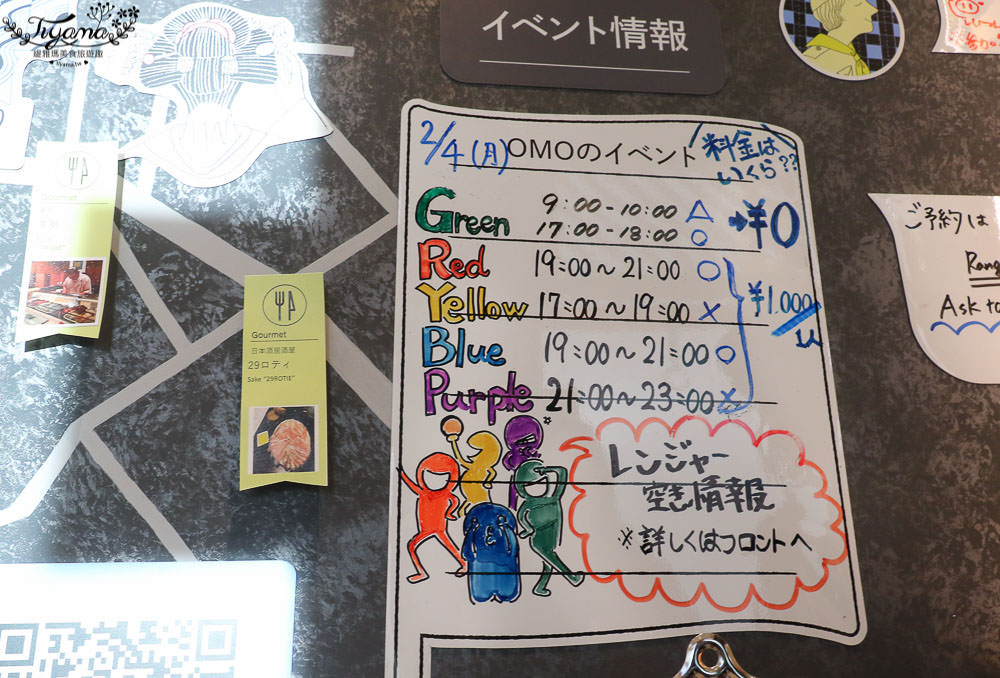 Tiyama
緹雅瑪美食旅遊趣
tiyama.tw
イベント情報
2/4(月)OMOのイベント
料金は
いくら??
Green 9:00-10:00 △
17:00-18:00 ○
➡¥0
Red 19:00～21:00 ○
Yellow 17:00～19:00 ×
Blue 19:00～21:00 ○
Purple 21:00～23:00 ×
¥1.000/1人
レンジャー
空き情報
※詳しくはフロントへ
Gourmet
Gourmet
日本酒居酒屋
29ロティ
Sake "29ROTIE"
ご予約は
Rang
Ask to